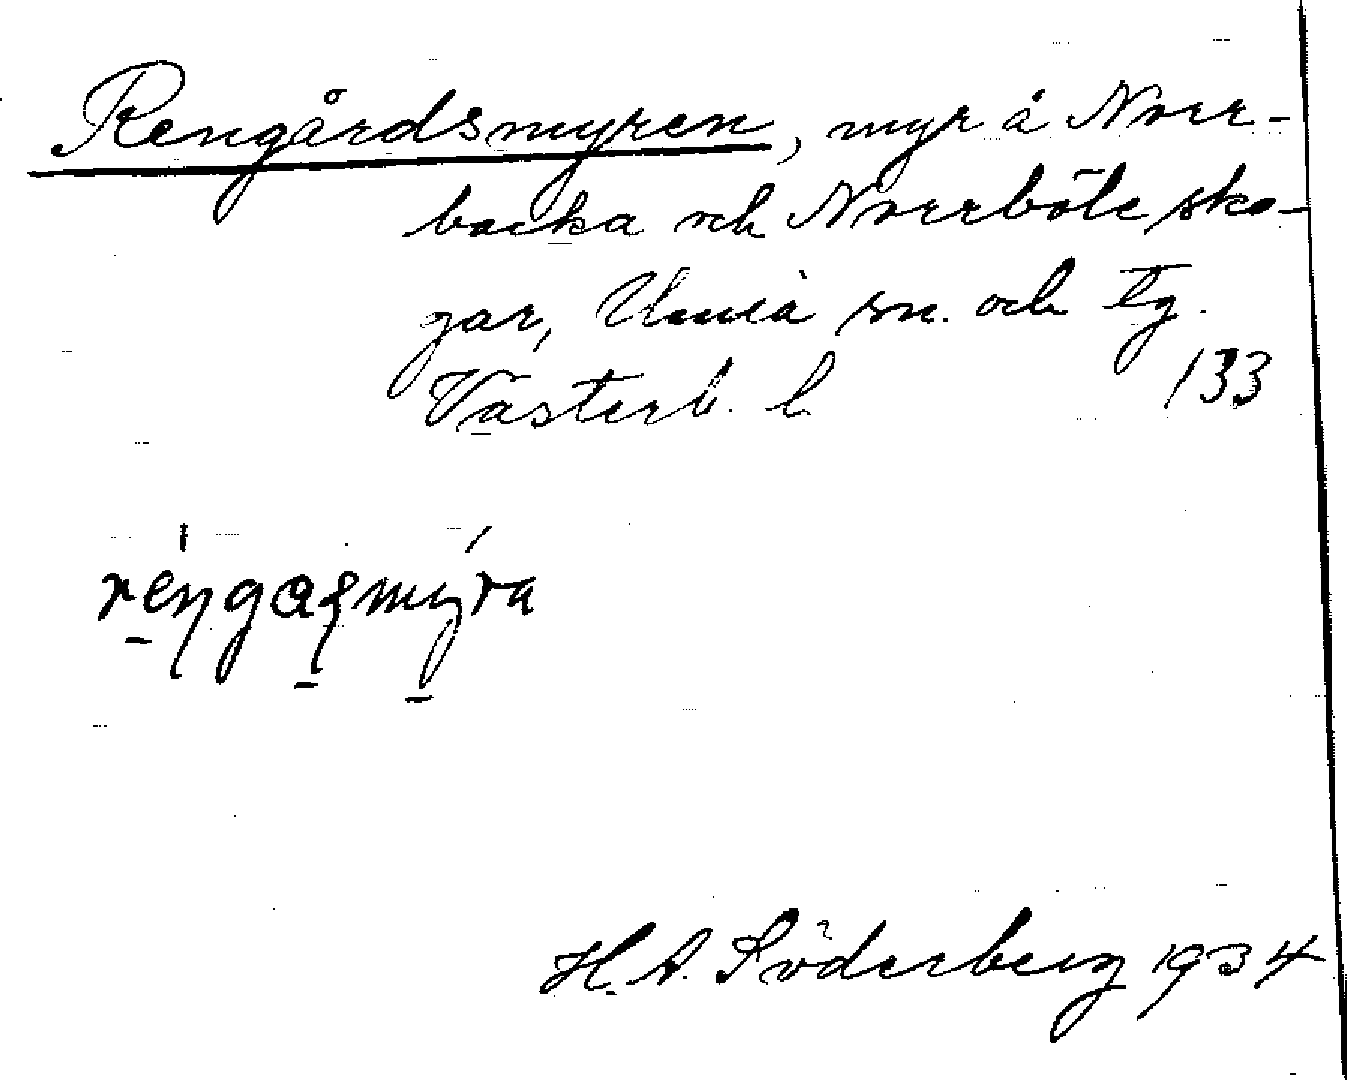 Rengårdsmyren, myr å Norr-
backa och Norrböle sko-
gar, Umeå sn. och tg.
Västerb. l. 133
rengasmyra
H. A. Söderberg 1934